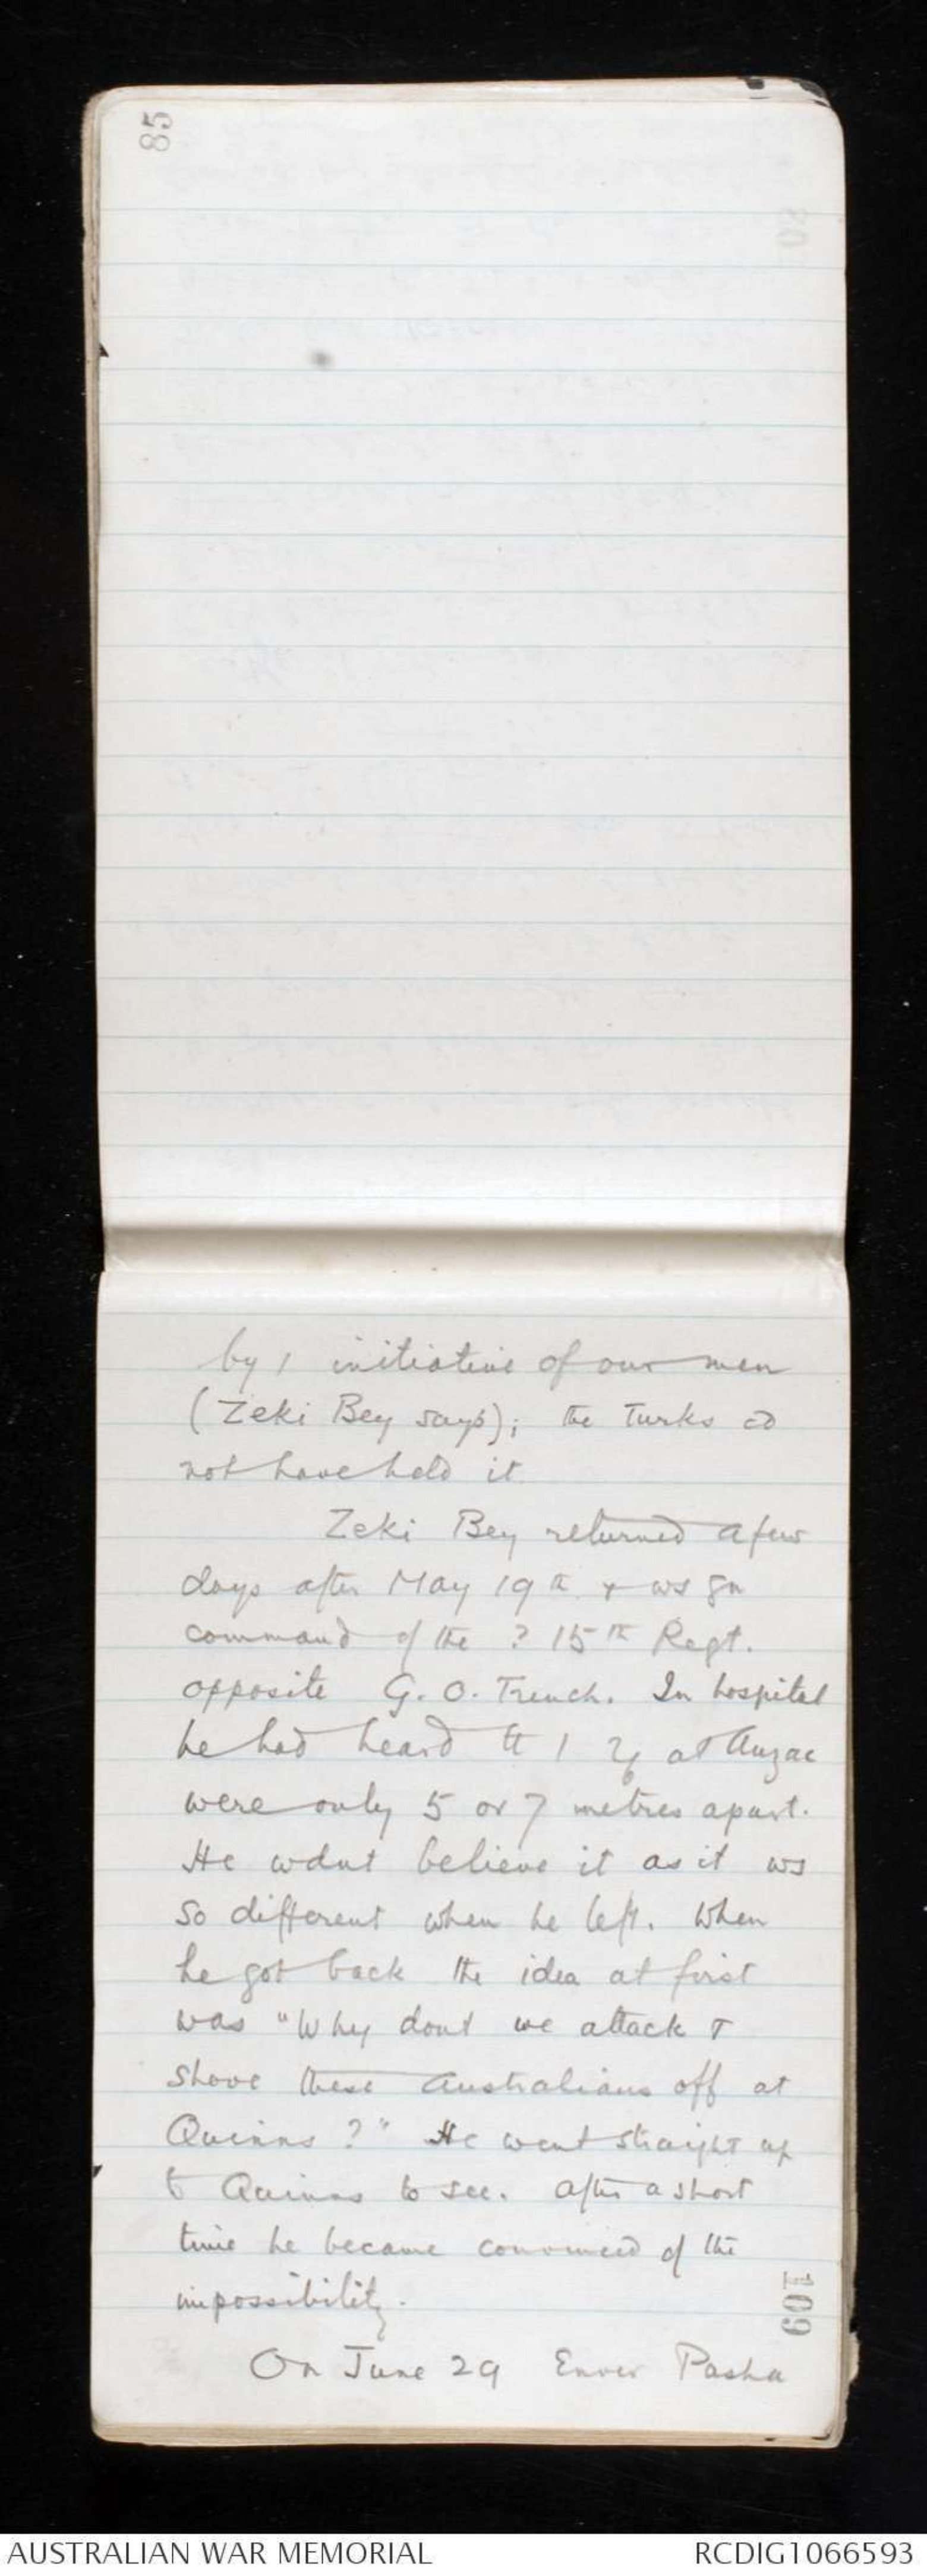 85
by / initiative of our men
(Zeki Bey says); the Turks cd
not have held it
Zeki Bey returned a few
days after May 19th & ws gn
command of the ? 15th Regt.
opposite G.O. Trench. In hospital
he had heard tt / at Anzac
were only 5 or 7 metres apart.
He wdnt believe it as it ws
so different when he left. When
he got back the idea at first
was "Why dont we attack &
shove these Australians off at
Quinns?" He went straight up
to Quinns to see. After a short
time he became convinced of the
impossibility.
109
On June 29 Enver Pasha
AUSTRALIAN WAR MEMORIAL
RCDIG1066593